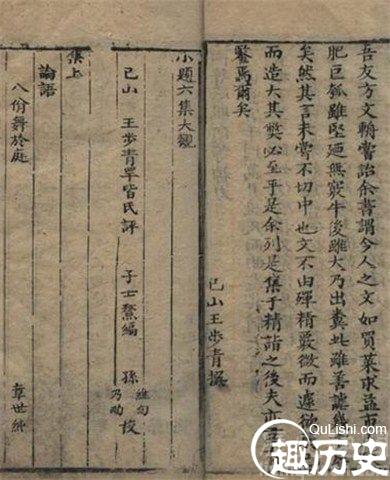 吾友方文輈嘗詒余書謂今人之文如買菜求益市
肥巨瓠雖堅廻無竅牛後雖大乃出糞此雖善謔
矣然其言未嘗不切中也文不由殫精覈微而遽欲
而造大其獘必至乎是余列是集于精詣之後夫亦
鑒焉爾矣
已山王步青撰
小題六集大觀
已山 王步青罕皆民評 子士鰲編 孫 維甸 乃昀 校
集上
論語
八佾舞於庭 章世純
QuLishi.com
趣历史